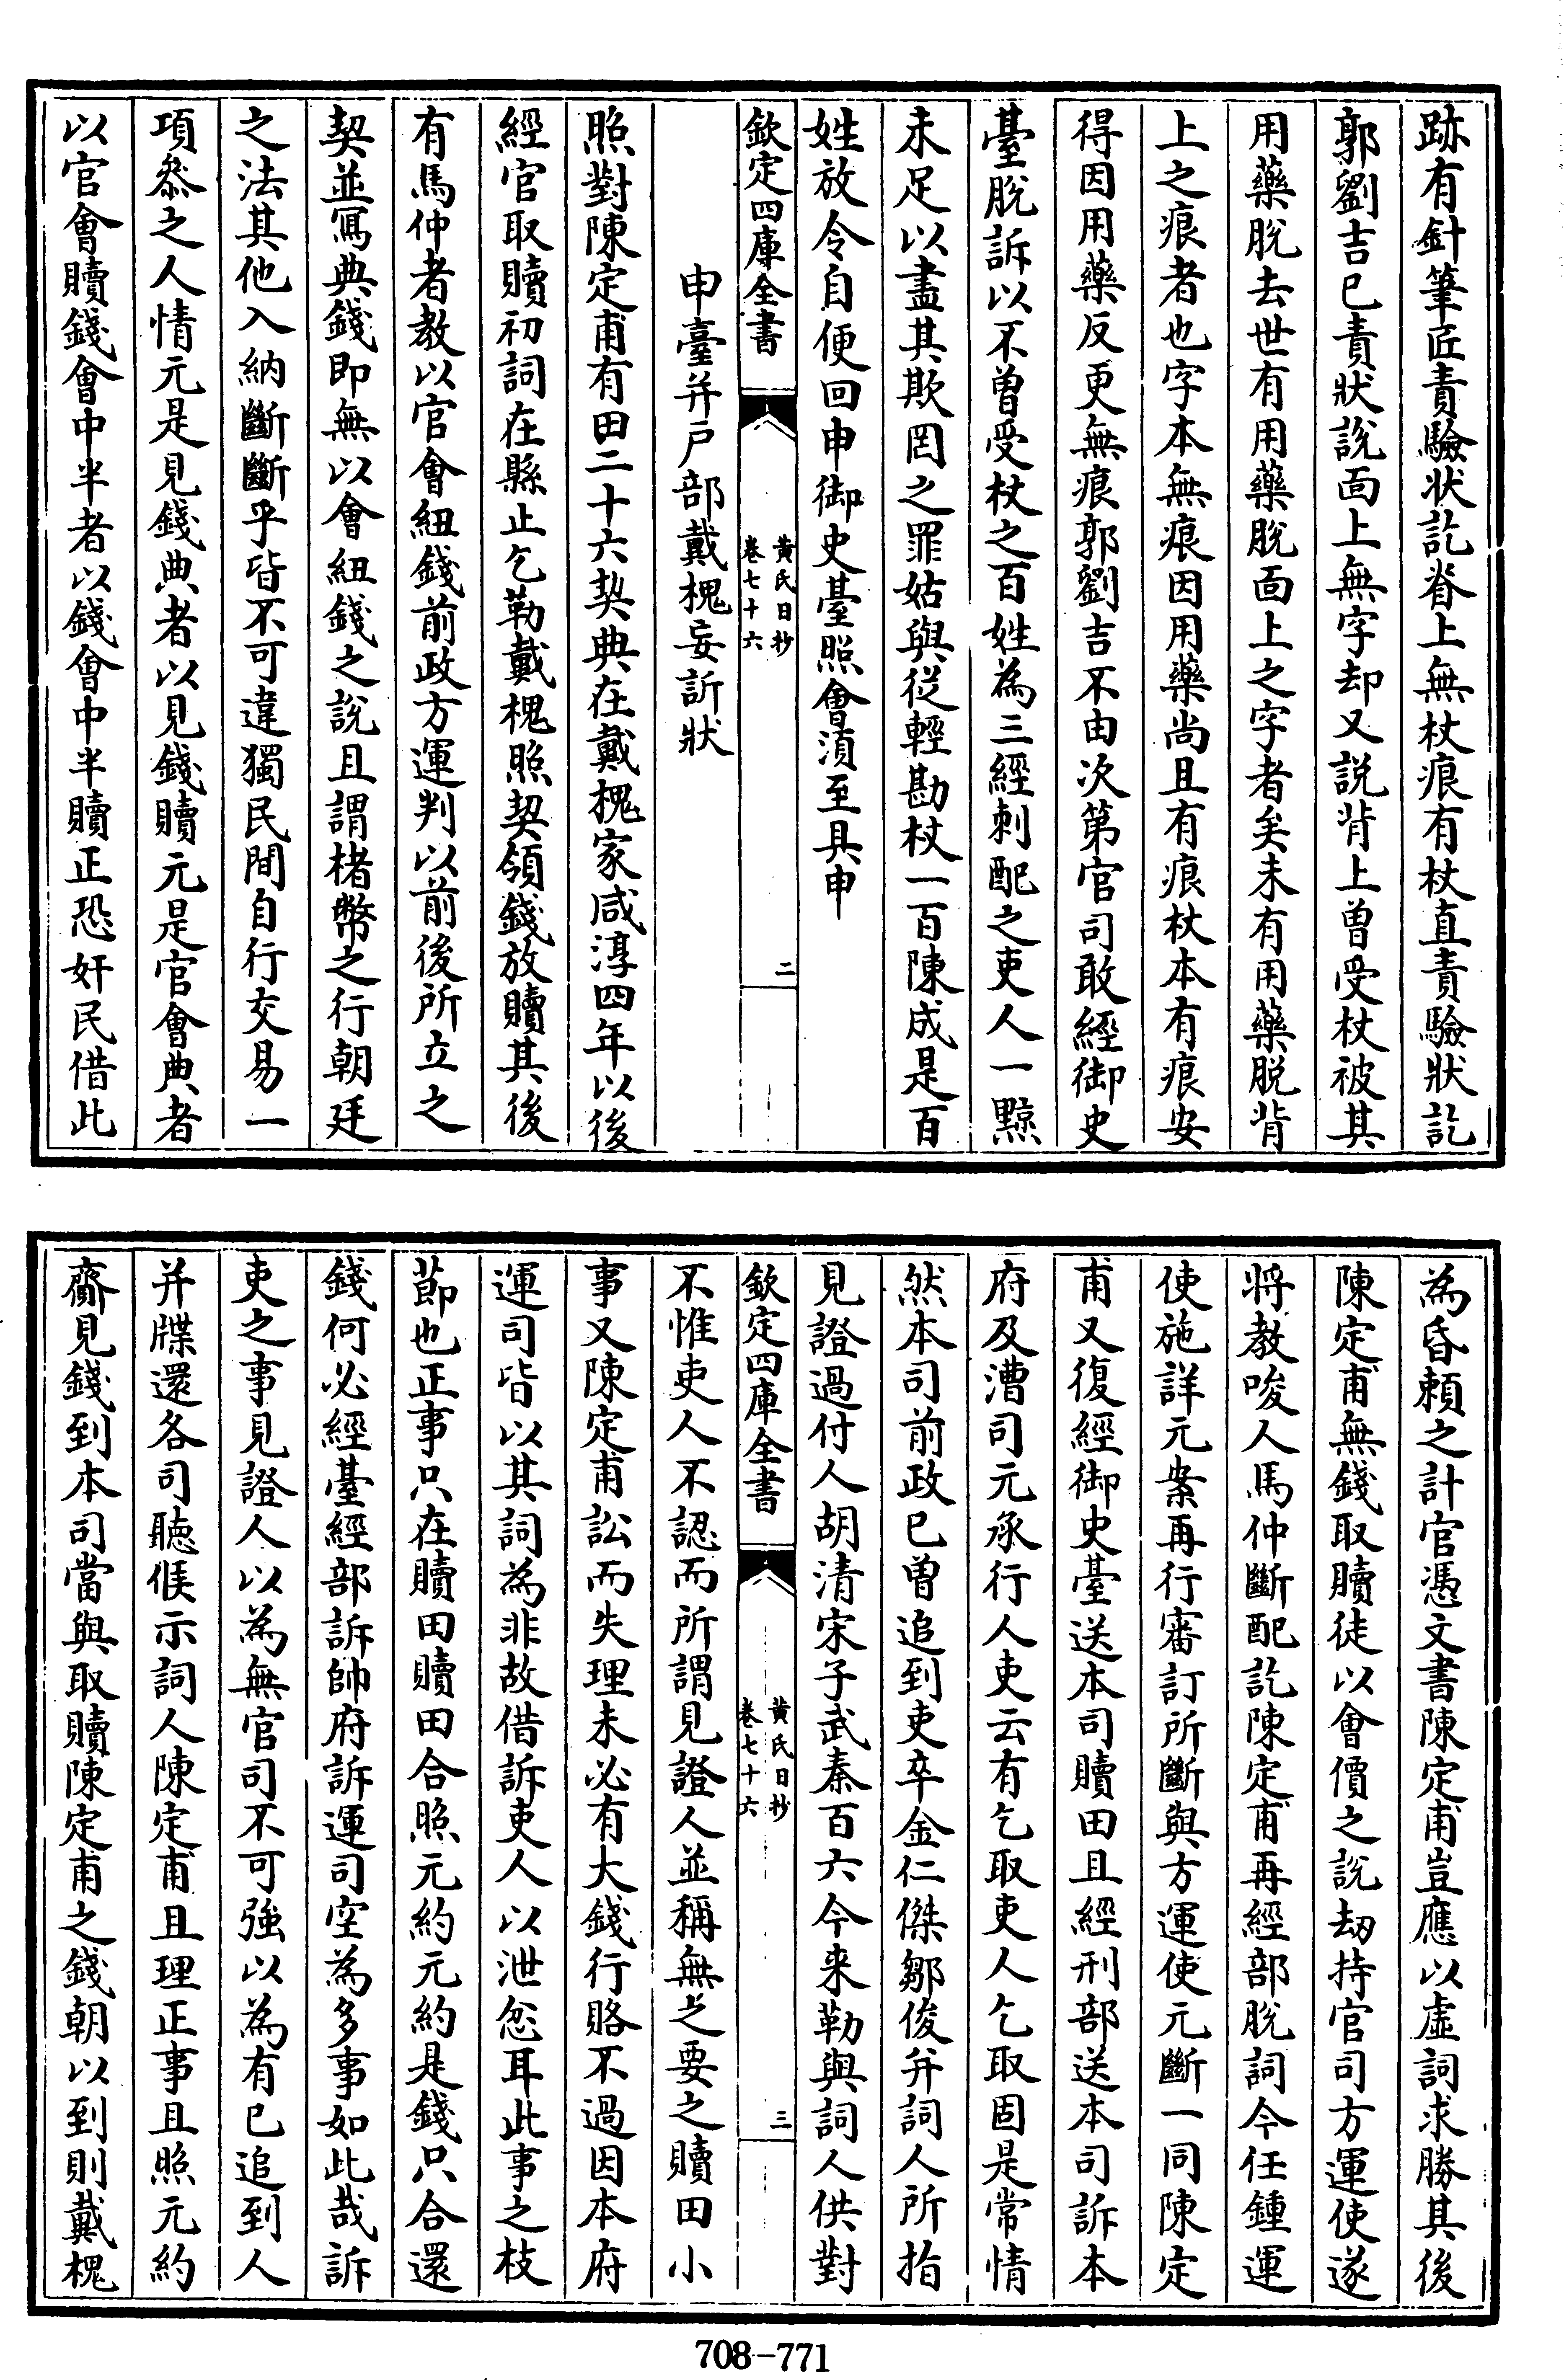 跡有針筆匠責驗狀訖脊上無杖痕有杖直責驗狀訖
郭劉吉已責狀說面上無字却又説背上曽受杖被其
用藥脫去世有用藥脫面上之字者矣未有用藥脱背
上之痕者也字本無痕因用藥尚且有痕杖本有痕安
得因用藥反更無痕郭劉吉不由次第官司敢經御史
臺脫訴以不曽受杖之百姓為三經刺配之吏人一黥
未足以盡其欺罔之罪姑與從輕勘杖一百陳成是百
姓放令自便回申御史臺照會湏至具申
欽定四庫全書
黄氏日抄
卷七十六
二
申臺并戶部戴槐妄訢狀
照對陳定甫有田二十六契典在戴槐家咸淳四年以後
經官取贖初詞在縣止乞勒戴槐照契領錢放贖其後
有馬仲者教以官會紐錢前政方運判以前後所立之
契並寫典錢即無以會紐錢之說且謂楮幣之行朝廷
之法其他入納斷斷乎皆不可違獨民間自行交易一
項叅之人情元是見錢典者以見錢贖元是官會典者
以官會贖錢會中半者以錢會中半贖正恐奸民借此
為昏頼之計官憑文書陳定甫豈應以虛詞求勝其後
陳定甫無錢取贖徒以會價之說刼持官司方運使遂
將教唆人馬仲斷配訖陳定甫再經部脫詞今任鍾運
使施詳元案再行審訂所斷與方運使元斷一同陳定
甫又復經御史臺送本司贖田且經刑部送本司訴本
府及漕司元承行人吏云有乞取吏人乞取固是常情
然本司前政已曽追到吏卒金仁傑鄒俊并詞人所指
見證過付人胡清宋子武秦百六今来勒與詞人供對
欽定四庫全書
黄氏日抄
卷七十六
三
不惟吏人不認而所謂見證人並稱無之要之贖田小
事又陳定甫訟而失理未必有大錢行賂不過因本府
運司皆以其詞為非故借訴吏人以泄忿耳此事之枝
節也正事只在贖田贖田合照元約元約是錢只合還
錢何必經臺經部訴帥府訴運司空為多事如此哉訴
吏之事見證人以為無官司不可強以為有已追到人
并牒還各司聽候示詞人陳定甫且理正事且照元約
齎見錢到本司當與取贖陳定甫之錢朝以到則戴槐
708-771